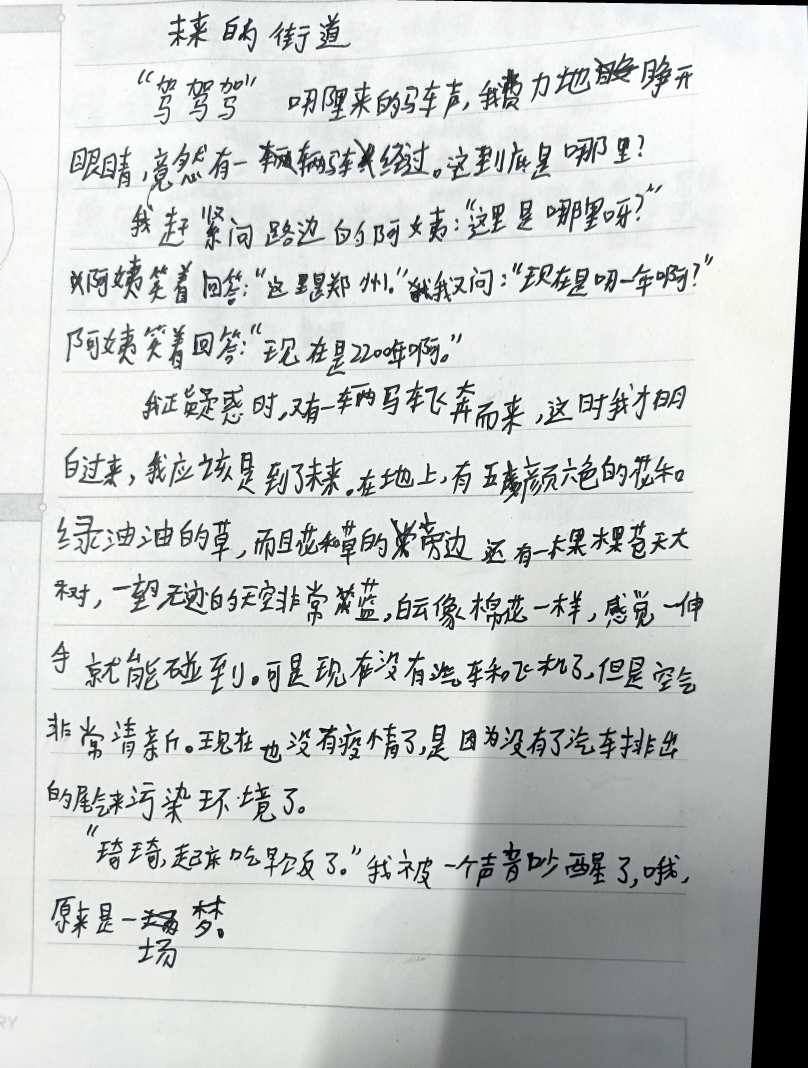 未来的街道
"驾驾驾" 哪里来的马车声，我费力地睁开
眼睛，竟然有一辆辆马车经过。这到底是哪里？
我赶紧问路边的阿姨："这里是哪里呀？"
阿姨笑着回答："这里是郑州。"我又问："现在是哪一年啊？"
阿姨笑着回答："现在是2200年啊。"
我正疑惑时，又有一辆马车飞奔而来，这时我才明
白过来，我应该是到了未来。在地上，有五颜六色的花和
绿油油的草，而且花和草的旁边还有一棵棵苍天大
树，一望无迹的天空非常蓝，白云像棉花一样，感觉一伸
手就能碰到。可是现在没有汽车和飞机了，但是空气
非常清新。现在也没有疫情了，是因为没有了汽车排出
的尾气来污染环境了。
"琦琦，起床吃早饭了。"我被一个声音吵醒了，哦，
原来是一场梦。